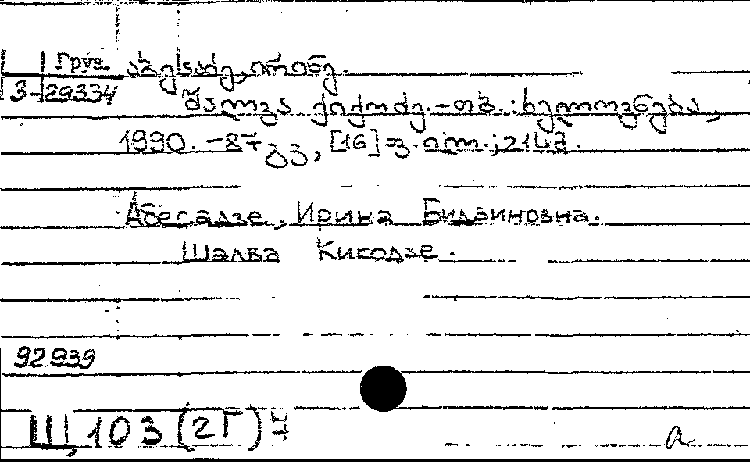 Груз. აბესაძე, ირინე.
3-29334
შალვა ქიქოძე. – თბ. : ხელოვნება,
1990. – 87 გვ, [16] გ. ილ. ; 21სმ.
Абесадзе, Ирина Бидзиновна.
Шалва Кикодзе.
92939
Щ 103 (2Г) 7
a